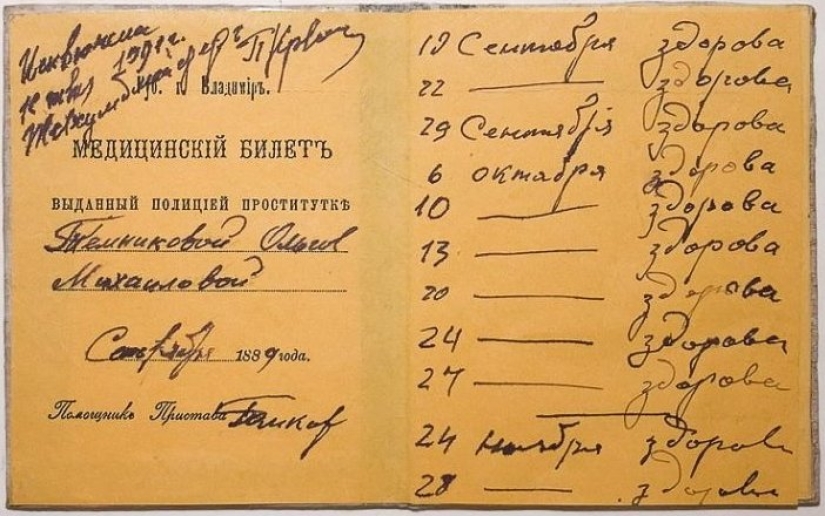 1891 г.
г. Владиміръ.
МЕДИЦИНСКІЙ БИЛЕТЪ
ВЫДАННЫЙ ПОЛИЦІЕЙ ПРОСТИТУТКѢ
Темниковой Ольгой
Михаиловой
Сентября 1889 года.
Помощникъ Пристава
19 Сентября здорова
22 — здорова
29 Сентября здорова
6 октября здорова
10 — здорова
13 — здорова
20 — здорова
24 — здорова
27 — здорова
24 ноября здорова
28 — здорова